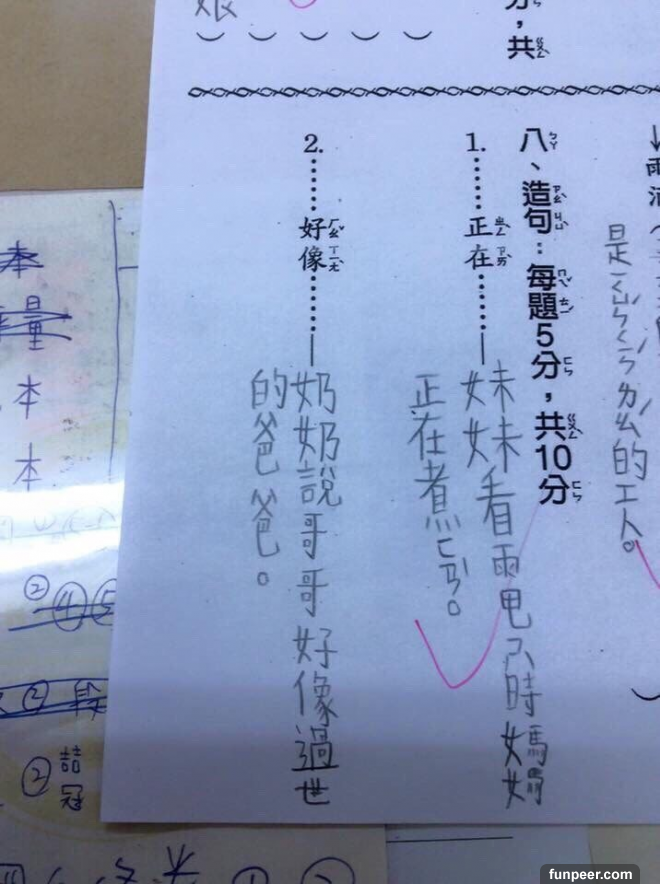 分，共
八、造句：每題5分，共10分
1.……正在……—
妹妹看電ㄕˋ時媽媽
正在煮ㄈㄢˋ。
2.……好像……—
奶奶說哥哥好像過世
的爸爸。
的工人。
本
量
本
本
②④⑤
② 段
② 喆
冠
funpeer.com